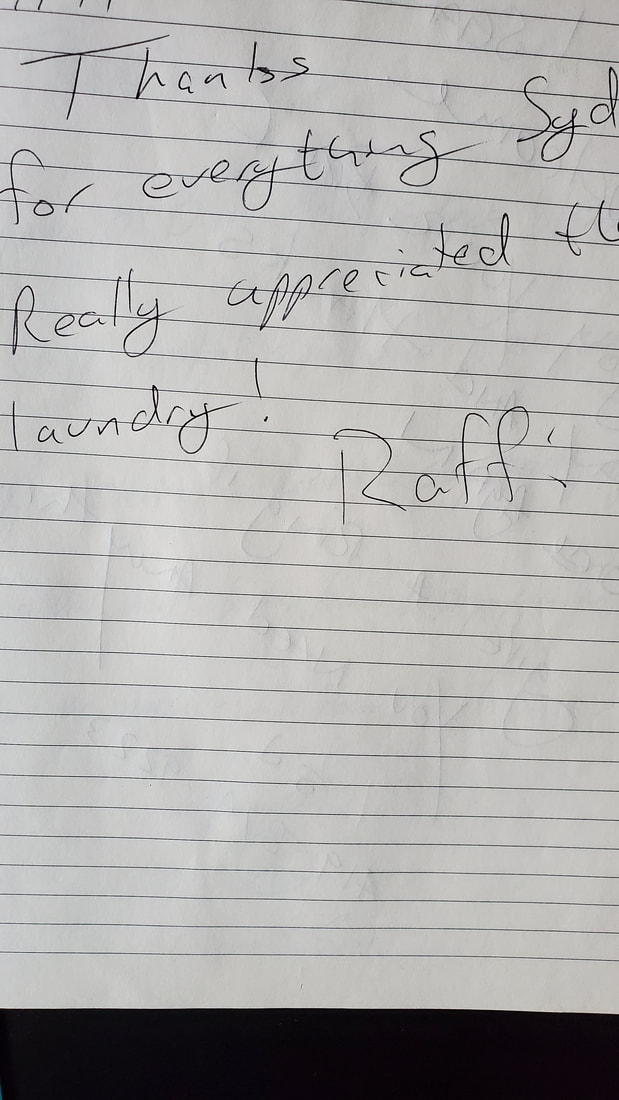 Thanks
for everything Syd
Really appreciated the
laundry!
Raffi